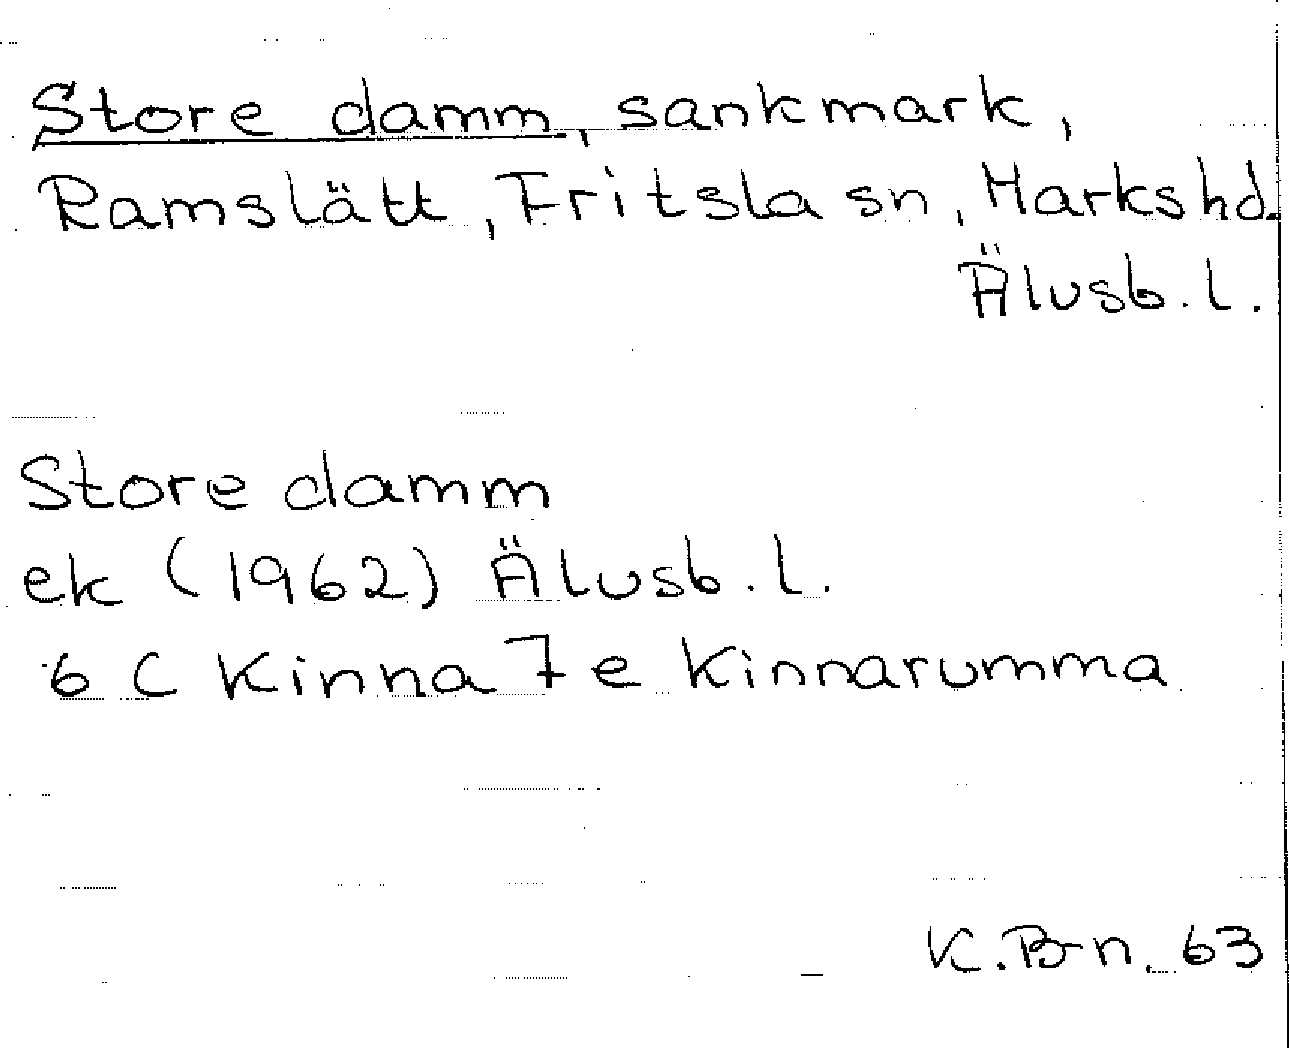 Store damm, sankmark,
Ramslätt, Fritsla sn, Marks hd.
Älvsb. l.
Store damm
ek (1962) Älvsb. l.
6 C Kinna 7 e Kinnarumma
K. B-n. 63